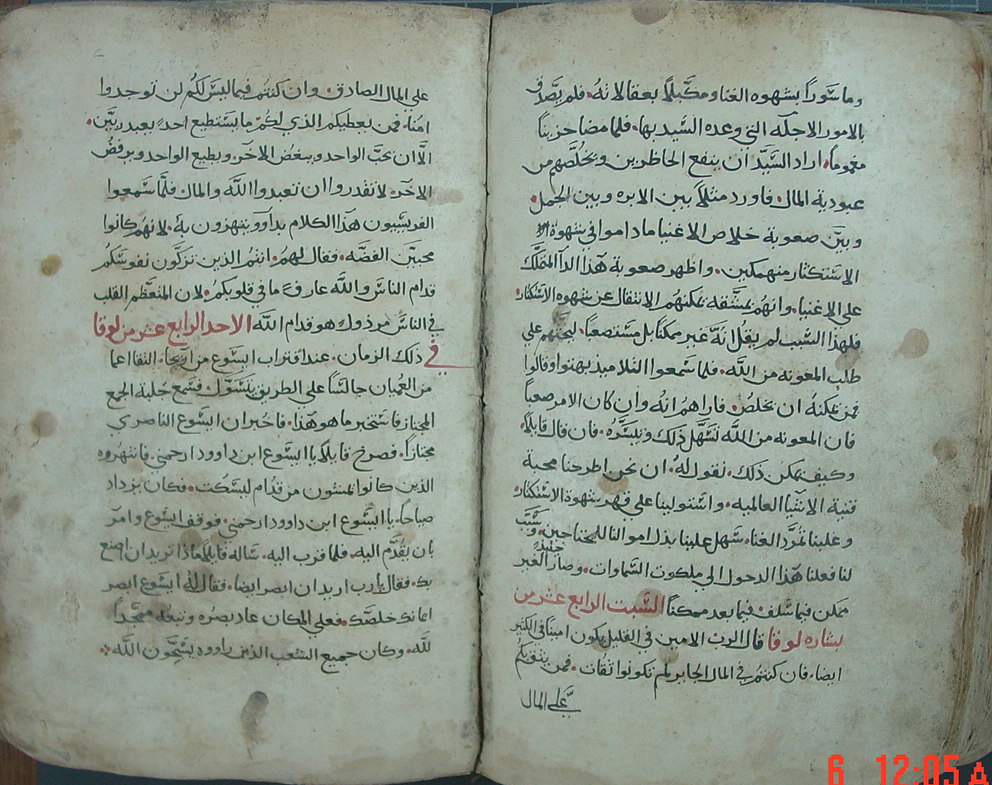 وماسورًا بشهوه الغنا ومكبلاً بعقالاته. فلم يصدق
بالامور الاجله التي وعده السيد بها. فلما مضا حزينًا
مغمومًا. اراد السيد ان ينفع الحاظرين ويخلصهم من
عبودية المال. فاورد مثلاً بين الابره وبين الجمل.
وبين صعوبة خلاص الاغنيا ماداموا في شهوة
الاستكثار منهمكين. واظهر صعوبة هذا الدآ المتملك
على الاغنيا. وانهم بمشقه يمكنهم الانتقال عن شهوه الاستكثار
فلهذا السبب لم يقل انه غير ممكنًا بل مستصعبًا. ليحثهم علي
طلب المعونه من الله. فلما سمعوا التلاميذ بهتوا وقالوا
فمن يمكنه ان يخلص. فاراهم انه وان كان الامر صعبًا
فان المعونه من الله تسهل ذلك وتيسره. فان قال قايلاً.
وكيف يمكن ذلك. نقول له. ان نحن اطرحنا محبة
قنية الاشيآ العالميه. واستولينا علي قهر شهوة الاستكثار
وغلبنا تمرد الغنا. سهل علينا بذل اموالنا للمحتاجين. وسبب
لنا فعلنا هذا الدخول الي ملكوت السماوات. وصار الغير
حينيذٍ
ممكن فيما سلف فيما بعد ممكنًا السبت الرابع عشر من
بشاره لوقا قال الرب الامين في القليل يكون امينًا في الكثير
ايضا. فان كنتم في المال الجاير لم تكونوا ثقات. فمن يثقكم
على المال
علي المال الصادق. وان كنتم فيما ليس لكم لن توجدوا
امنا. فمن يعطيكم الذي لكم. ما يستطيع احدٍ يعبد ربين.
الا ان يحب الواحد ويبغض الاخر. ويطيع الواحد ويرفض
الاخر. لا تقدروا ان تعبدوا الله والمال فلما سمعوا
الفريسيون هذا الكلام بداوو يتهزون به. لانهم كانوا
محبين الفضه. فقال لهم. انتم الذين تزكون نفوسكم
قدام الناس والله عارف ما في قلوبكم. لان المتعظم القلب
في الناس مرذول هو قدام الله الاحد الرابع عشر من لوقا
في ذلك الزمان. عند اقتراب ايسوع من اريحا. التقا اعما
من العميان جالسًا علي الطريق يتسول. فسمع جلبة الجمع
المجتاز فاستخبر ما هو هذا. فاخبر ان ايسوع الناصري
مجتازًا. فصرخ قايلاً يا ايسوع ابن داوود ارحمني. فانتهروه
الذين كانوا يمشون من قدام ليسكت. فكان يزداد
صياحًا. يا ايسوع ابن داوود ارحمني. فوقف ايسوع وامر
بان يقدم اليه. فلما قرب اليه. ساله قايلاً ماذا تريد ان اصنع
بك. فقال يارب اريد ان ابصر ايضا. فقال له ايسوع ابصر
ايمانك خلصك. فعلي المكان عاد بصره وتبعه ممجدًا
لله. وكان جميع الشعب الذين راووه يسبحون الله.
6 12:05 A